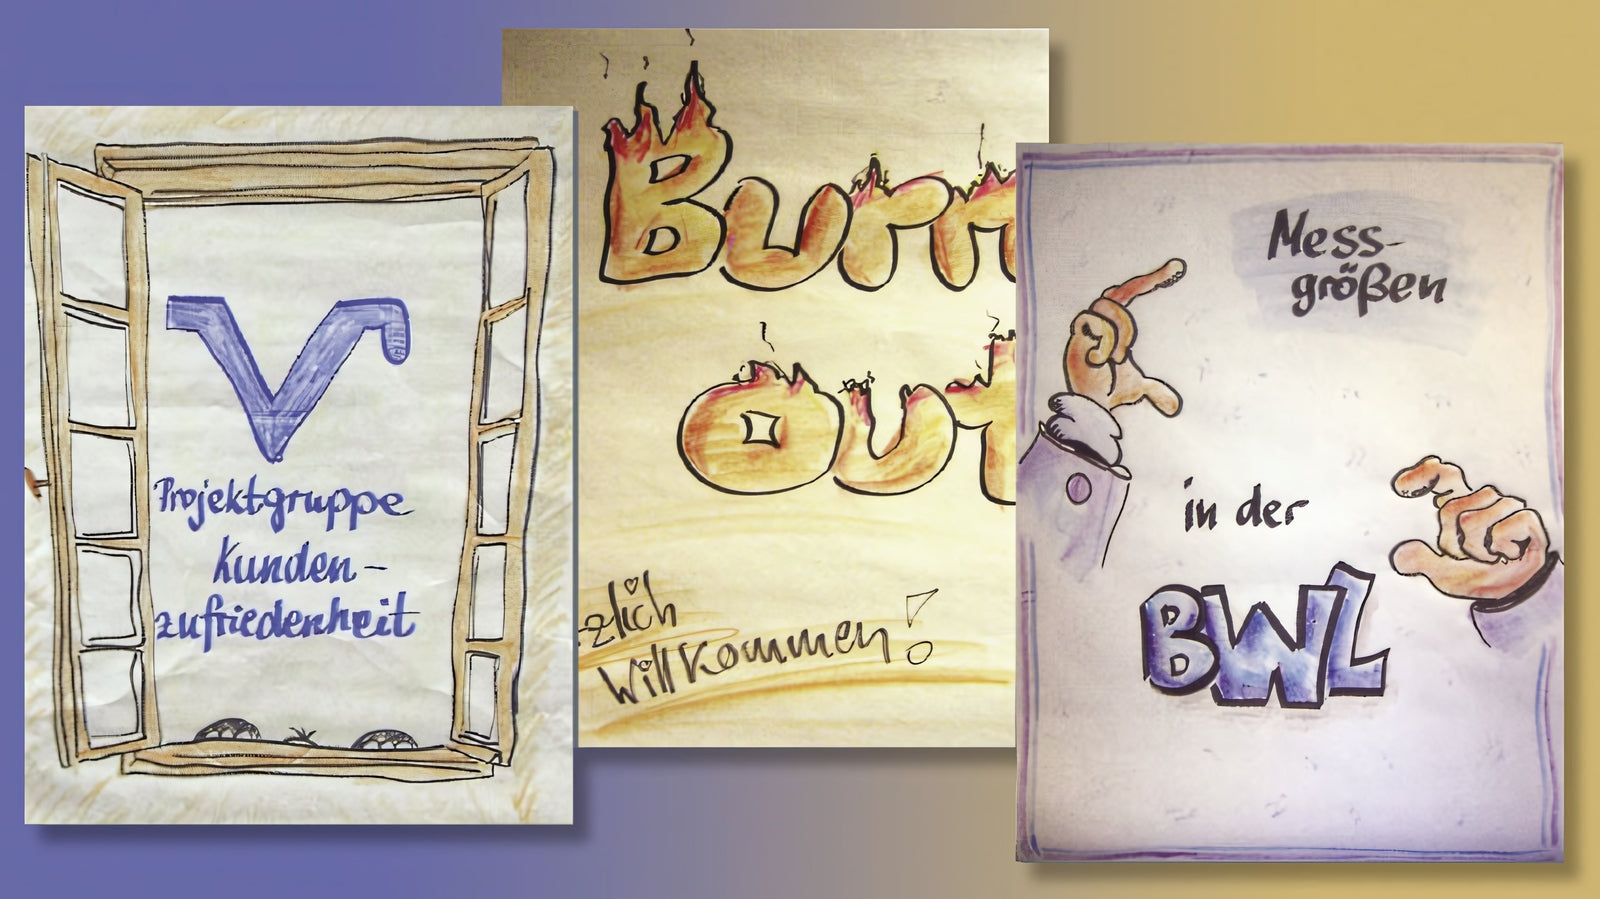 Projektgruppe
Kunden-
zufriedenheit
Burn
Out
zlich
Willkommen!
Mess-
größen
in der
BWL